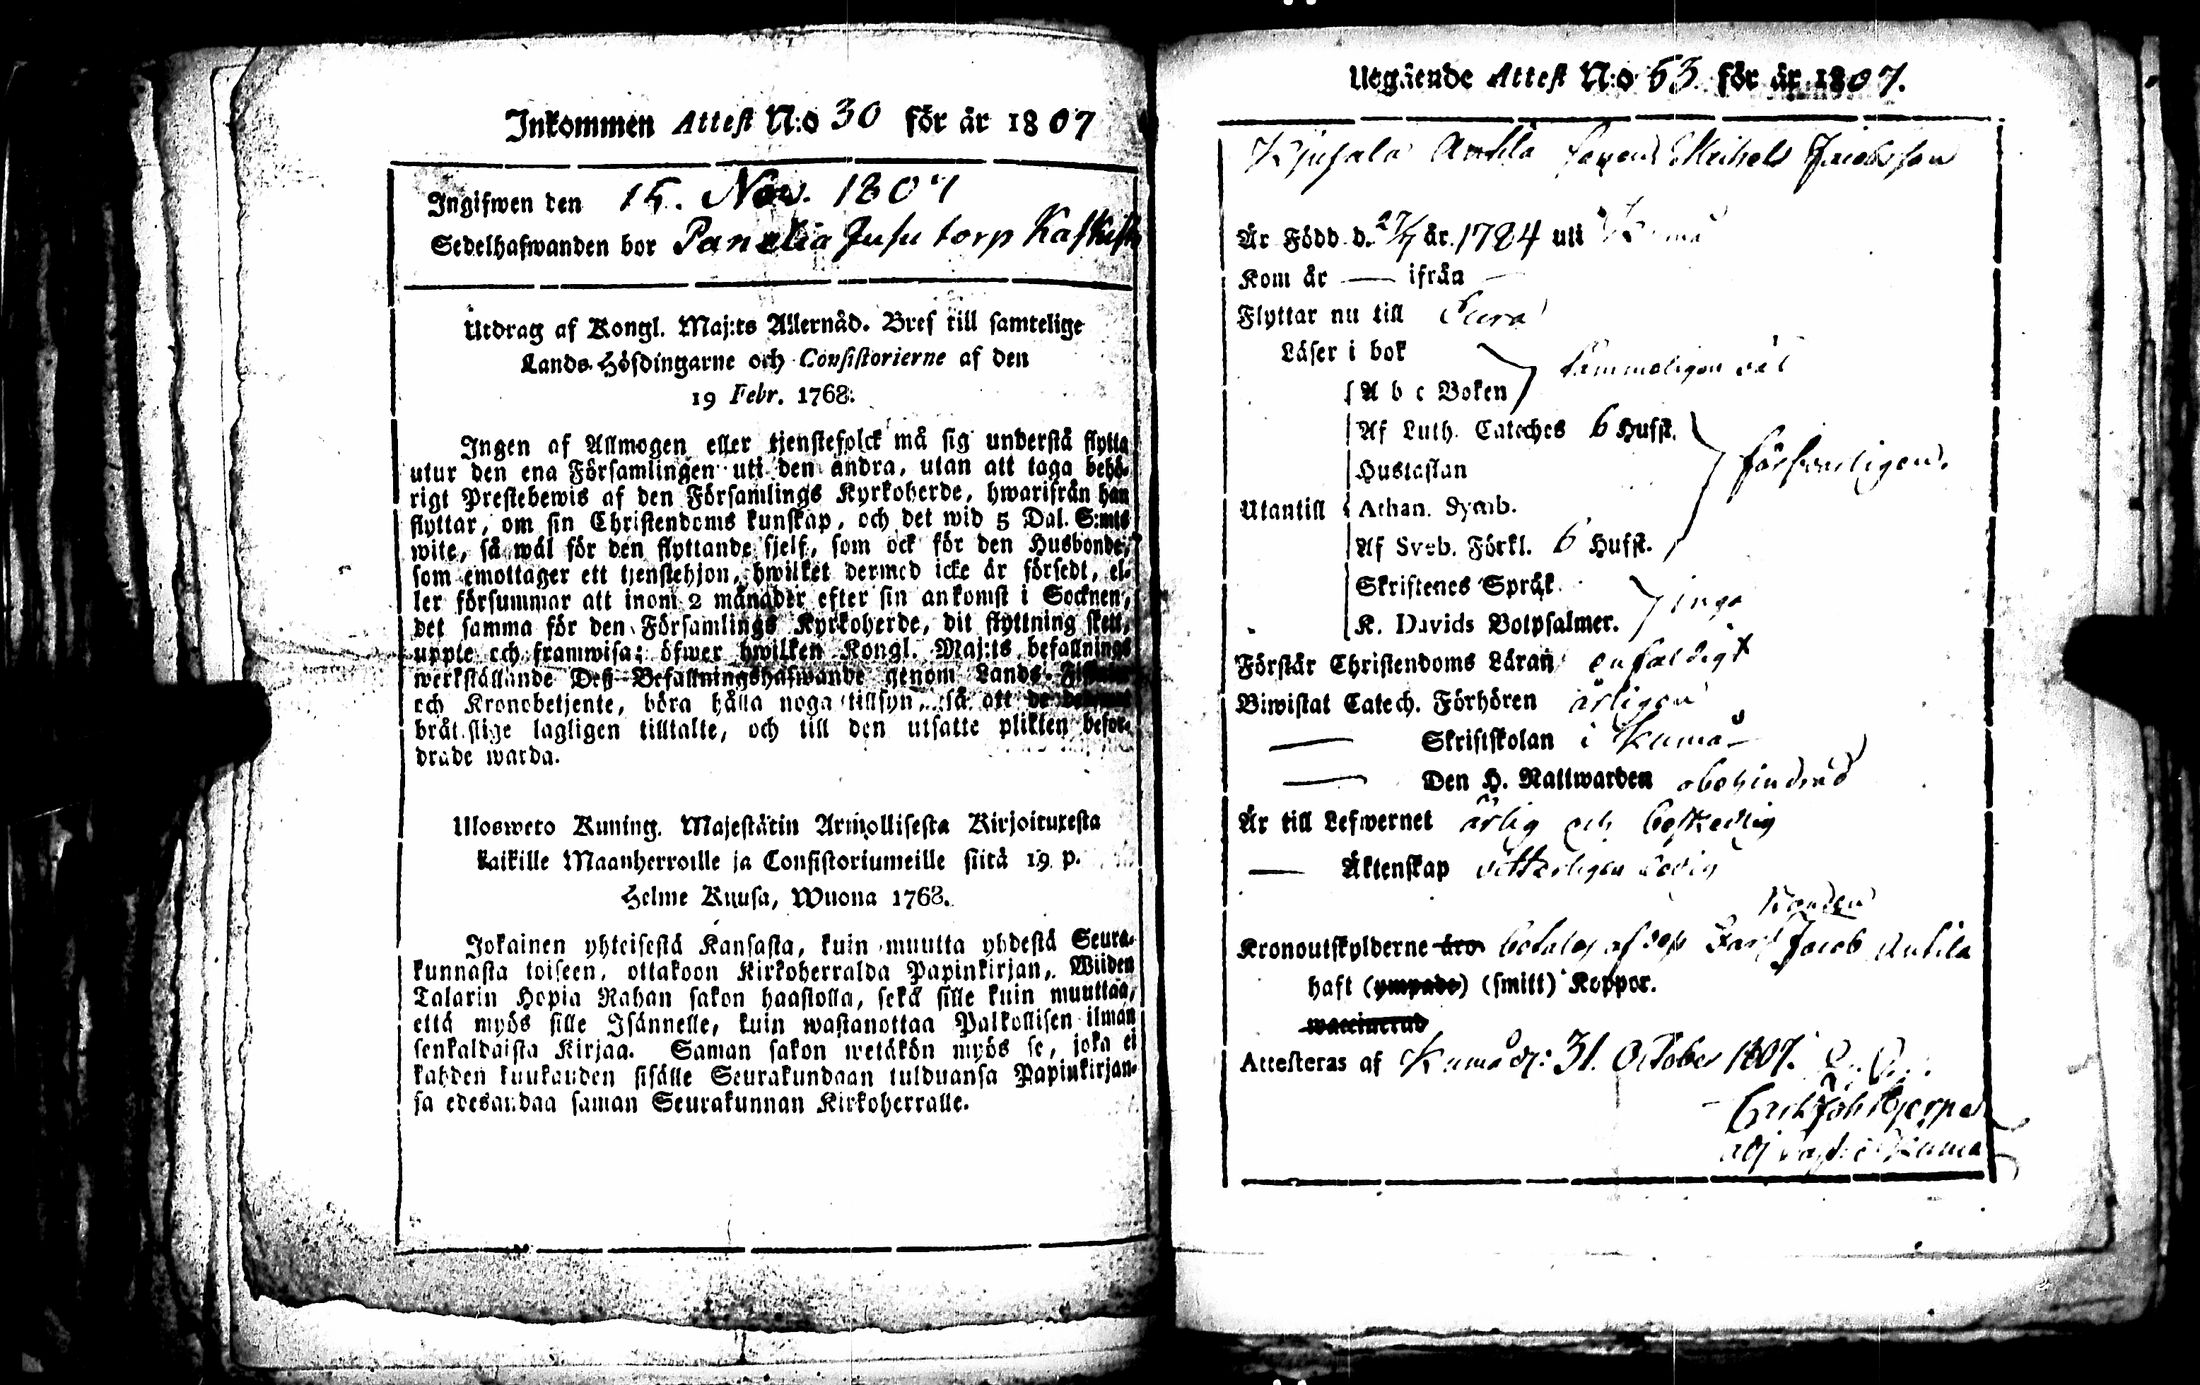 Inkommen Attest N:o 30 för år 1807
Ingifwen den 15. Nov. 1807
Sedelhafwanden bor Panelia Jusu torp
Utdrag af Kongl. Maj:ts Allernåd. Bref till samtelige
Lands-Höfdingarne och Consistorierne af den
19 Febr. 1768.
Ingen af Allmogen eller tjenstefolck må sig understå flytta
utur den ena Församlingen uti den andra, utan att taga behö-
rigt Prestebewis af den Församlings Kyrkoherde, hwarifrån han
flyttar, om sin Christendoms kunskap, och det wid 5 Dal. S:mts
wite, så wäl för den flyttande sjelf, som ock för den Husbonde,
som emottager ett tjenstehjon, hwilket dermed icke är försedt, el-
ler försummar att inom 2 månader efter sin ankomst i Socknen,
det samma för den Församlings Kyrkoherde, dit flyttning skett,
upple och framwisa; öfwer hwilken Kongl. Maj:ts befallnings
werkställande Deß Befallningshafwande genom Lands-
och Kronobetjente, böra hålla noga tillsyn, så att de
bråtslige lagligen tilltalte, och till den utsatte plikten befor-
drade warda.
Ulosweto Kuning. Majestätin Armollisesta Kirjoituxesta
kaikille Maanherroille ja Consistoriumeille siitä 19 p.
Helme Kuusa, Wuona 1768.
Jokainen yhteisestä Kansasta, kuin muutta yhdestä Seura-
kunnasta toiseen, ottakoon Kirkoherralda Papinkirjan, Wiiden
Talarin Hopia Rahan sakon haastolla, sekä sille kuin muuttaa,
että myös sille Isännelle, kuin wastanottaa Palkollisen ilman
senkaldaista Kirjaa. Saman sakon wetäkön myös se, joka ei
kahden kuukauden sisälle Seurakundaan tulduansa Papinkirjan-
sa edesandaa saman Seurakunnan Kirkoherralle.
Utgående Attest N:o 53 för år 1807.
Antila Michels Jacobsson
Är Född d. 27/7 år 1784 uti Kumå
Kom år — ifrån —
Flyttar nu till Eura
Läser i bok
A b c Boken
temmeligen väl
Af Luth. Cateches 6 Hufst.
Hustaflan
försvarligen.
Utantill
Athan. Symb.
Af Sveb. Förkl. 6 Hufst.
Skriftenes Språk
K. Davids Botpsalmer.
inga
Förstår Christendoms Läran enfaldigt
Biwistat Catech. Förhören årligen
— Skriftskolan i Kumå
— Den H. Nattwarden obehindrad
Är till Lefwernet ärlig och beskedlig
— Äktenskap vitterligen ledig
Bonden
Kronoutskylderne äro betalas af deß Far Jacob Antila
haft (ympade) (smitt) Koppor.
waccinerad
Attesteras af Kumo d: 31. October 1807.